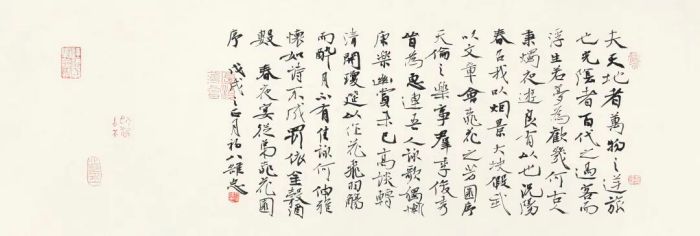 夫天地者萬物之逆旅
也光陰者百代之過客而
浮生若夢為歡幾何古人
秉燭夜遊良有以也況陽
春召我以烟景大塊假我
以文章會桃花之芳園序
天倫之樂事羣季俊秀
皆為惠連吾人詠歌獨慚
康樂幽賞未已高談轉
清開瓊筵以坐花飛羽觴
而醉月不有佳詠何伸雅
懷如詩不成罰依金穀酒
數 春夜宴從弟桃花園
序 戊戌之正月初八雄忠